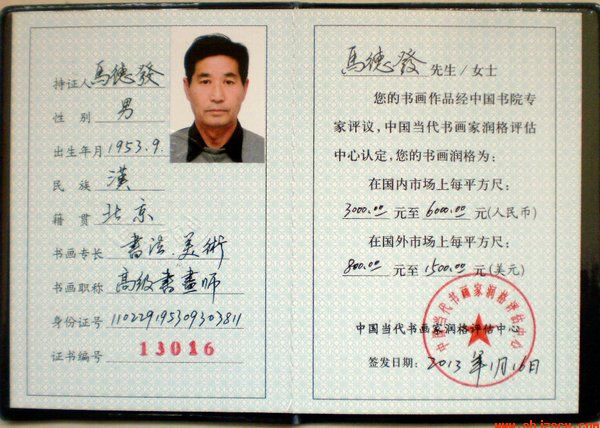 持证人馬德發
性 别 男
出生年月 1953.9.
民 族 漢
籍 贯 北京
书画专长 書法.美術
书画职称 高级書畫师
身份证号 110229195309303811
证书编号 13016
馬德發 先生/女士
您的书画作品经中国书院专
家评议,中国当代书画家润格评估
中心认定,您的书画润格为:
在国内市场上每平方尺:
3000.00 元至 6000.00 元(人民币)
在国外市场上每平方尺:
800.00 元至 1500.00 元(美元)
中国当代书画家润格评估中心
签发日期: 2013 年1月16日
中国当代书画家润格评估中心